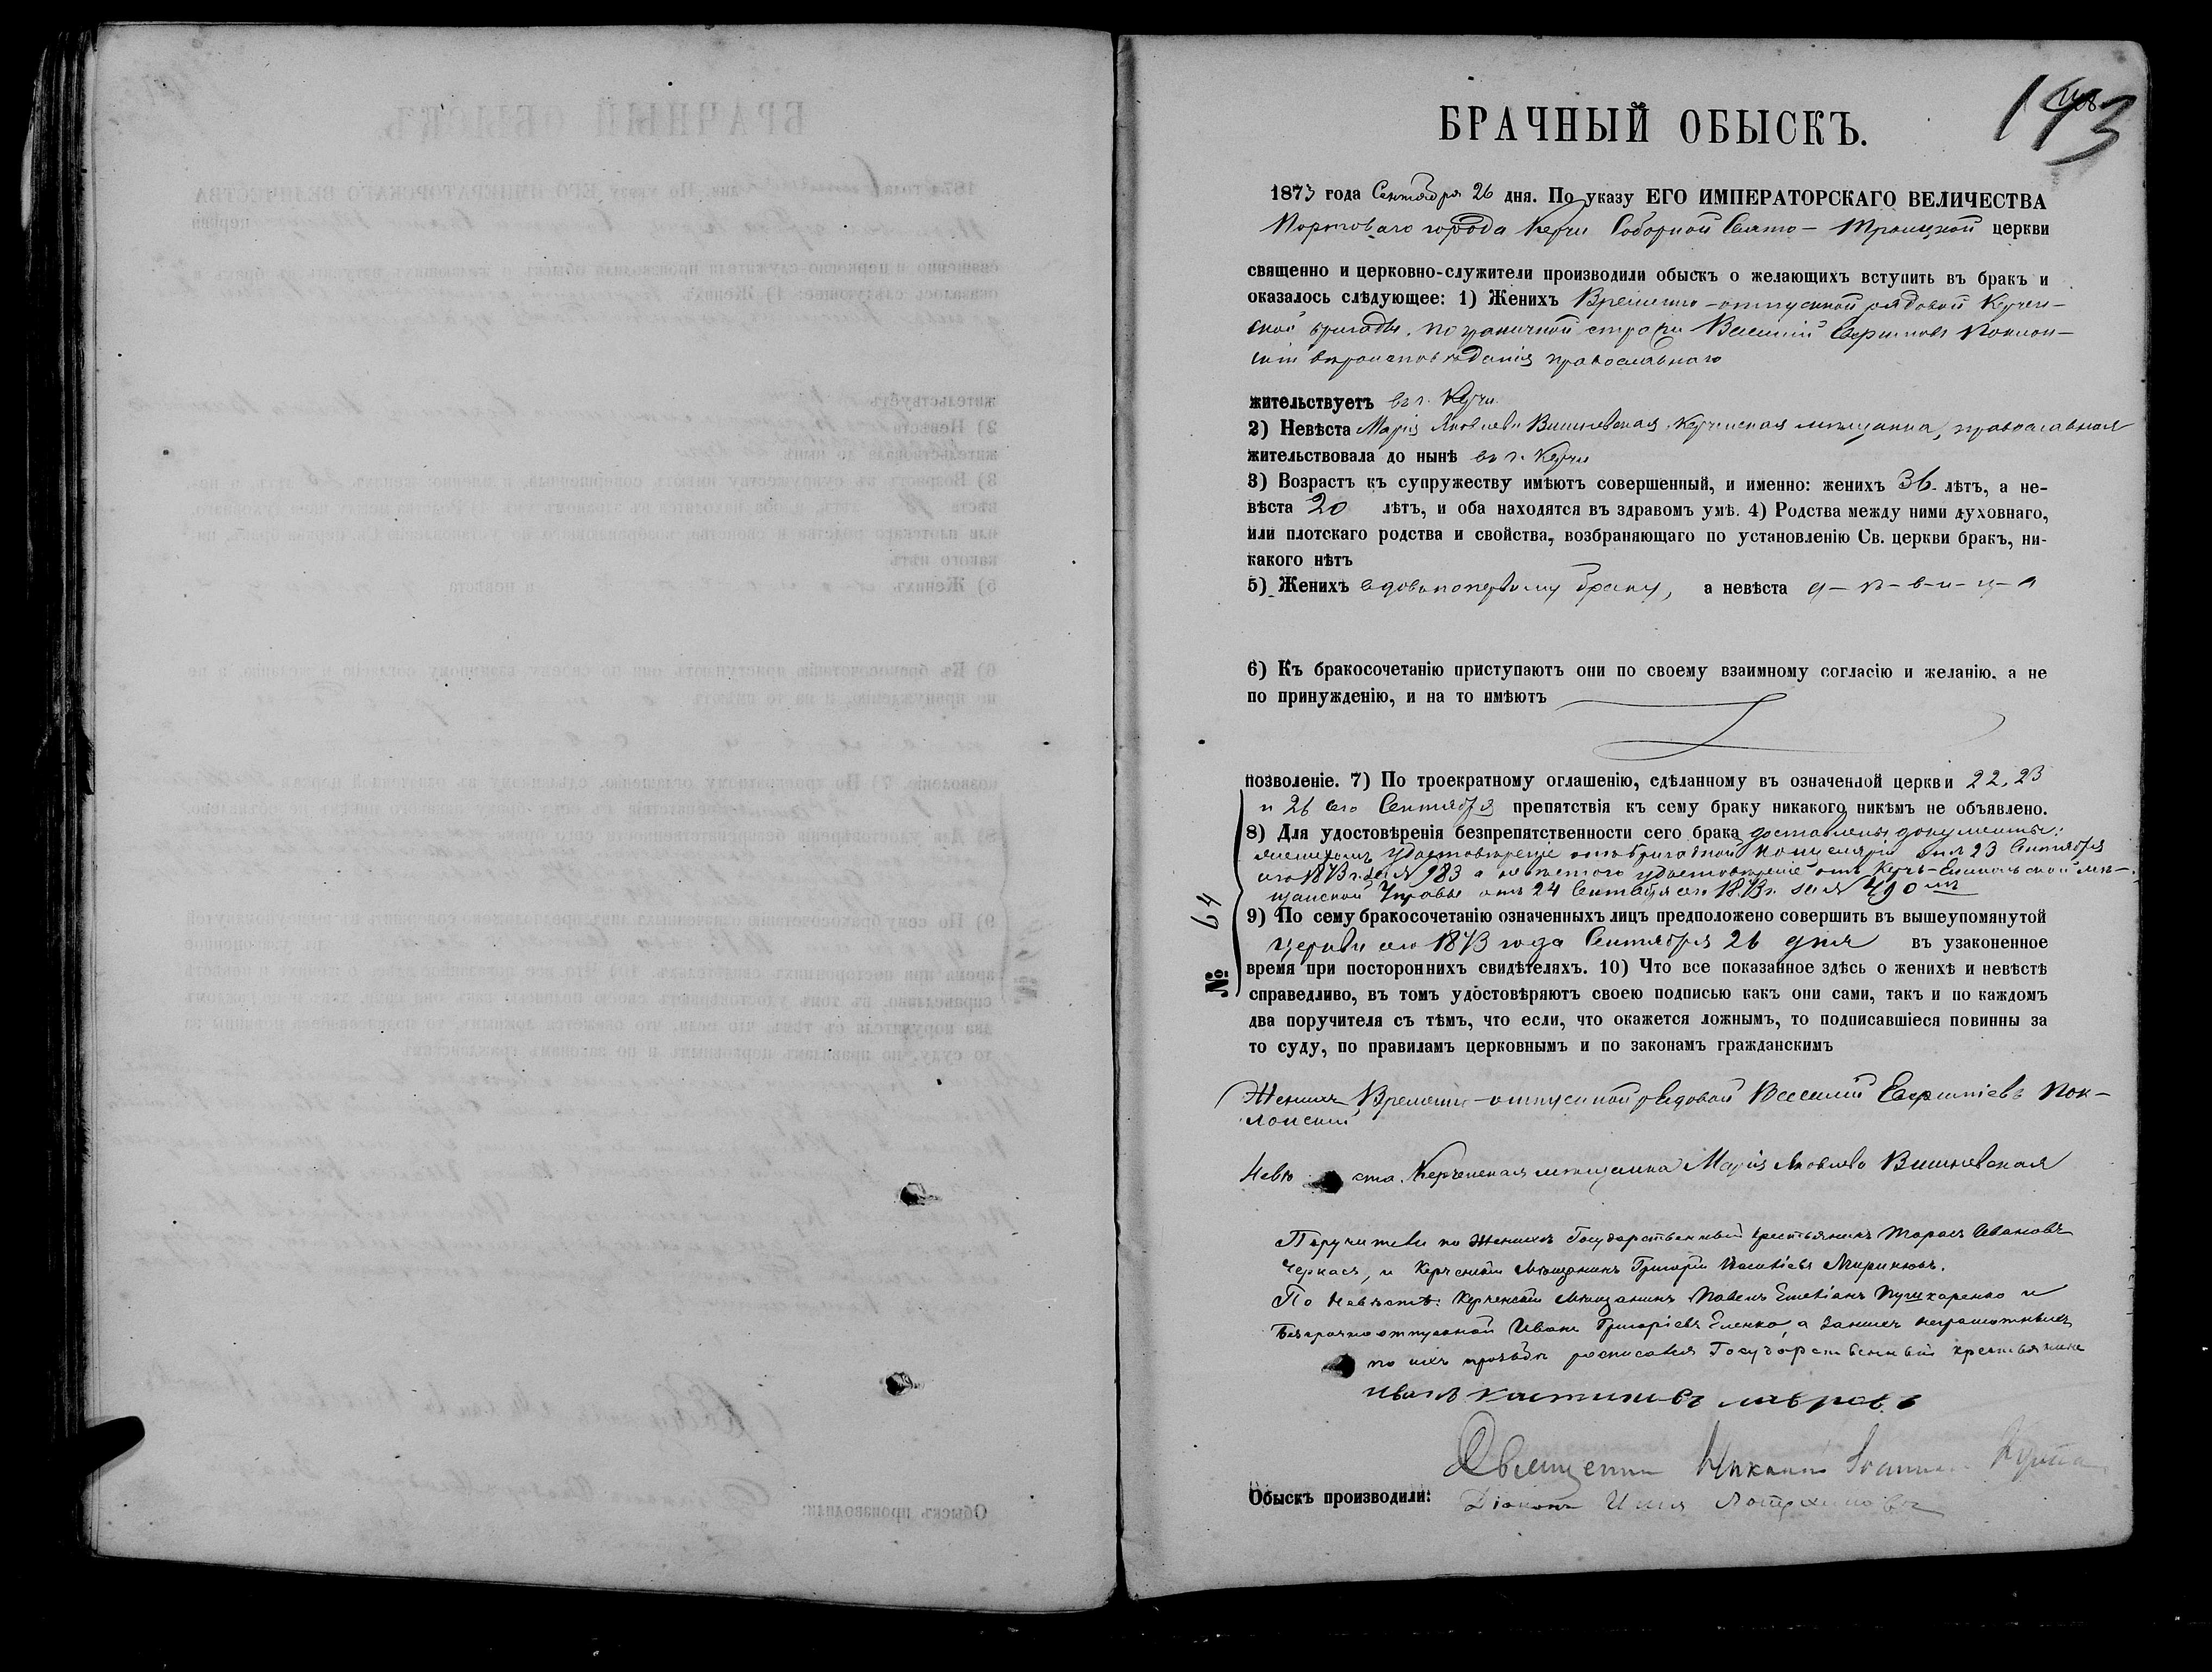 193
БРАЧНЫЙ ОБЫСКЪ.
1873 года Сентября 26 дня. По указу ЕГО ИМПЕРАТОРСКАГО ВЕЛИЧЕСТВА
Портоваго города Керчи Соборной Свято-Троицкой церкви
священно и церковно-служители производили обыскъ о желающихъ вступить въ бракъ и
оказалось слѣдующее: 1) Женихъ Временно-отпускной рядовой Керчен-
ской бригады пограничной стражи Василій Евфимовъ Поклон-
скій вѣроисповѣданія православнаго
жительствуетъ въ г. Керчи
2) Невѣста Марія Яковлева Вишневская, Керченская мѣщанка, православная
жительствовала до нынѣ въ г. Керчи
3) Возрастъ къ супружеству имѣютъ совершенный, и именно: женихъ 36 лѣтъ, а не-
вѣста 20 лѣтъ, и оба находятся въ здравомъ умѣ. 4) Родства между ними духовнаго,
или плотскаго родства и свойства, возбраняющаго по установленію Св. церкви бракъ, ни-
какого нѣтъ
5) Женихъ вдовъ по первому браку, а невѣста д-ѣ-в-и-ц-а
6) Къ бракосочетанію приступаютъ они по своему взаимному согласію и желанію, а не
по принужденію, и на то имѣютъ
позволеніе. 7) По троекратному оглашенію, сдѣланному въ означенной церкви 22, 23
и 26 сего Сентября препятствія къ сему браку никакого никѣмъ не объявлено.
8) Для удостовѣренія безпрепятственности сего брака доставлены документы:
женихомъ удостовѣреніе отъ бригадной канцеляріи отъ 23 Сентября
сего 1873 г. за № 983 а невѣстою удостовѣреніе отъ Керчь-Еникольской мѣ-
щанской Управы отъ 24 Сентября сего 1873 г. за № 490мъ
№ 64
9) По сему бракосочетанію означенныхъ лицъ предположено совершить въ вышеупомянутой
церкви сего 1873 года Сентября 26 дня въ узаконенное
время при постороннихъ свидѣтеляхъ. 10) Что все показанное здѣсь о женихѣ и невѣстѣ
справедливо, въ томъ удостовѣряютъ своею подписью какъ они сами, такъ и по каждомъ
два поручителя съ тѣмъ, что если, что окажется ложнымъ, то подписавшіеся повинны за
то суду, по правиламъ церковнымъ и по законамъ гражданскимъ
Женихъ Временно-отпускной рядовой Василій Евфиміевъ Пок-
лонскій
Невѣста Керченская мѣщанка Марія Яковлева Вишневская
Поручители по Женихѣ Государственный крестьянинъ Тарасъ Ивановъ
Черкасъ, и Керченскій Мѣщанинъ Григорій
По Невѣстѣ: Керченскій Мѣщанинъ Павелъ Пушкаренко и
Безсрочноотпускной Иванъ Григоріевъ Еленко, а за нихъ неграмотныхъ
по ихъ прозьбѣ росписался Государственный крестьянинъ
Иванъ лавровъ
Священникъ
Обыскъ производили: Діаконъ